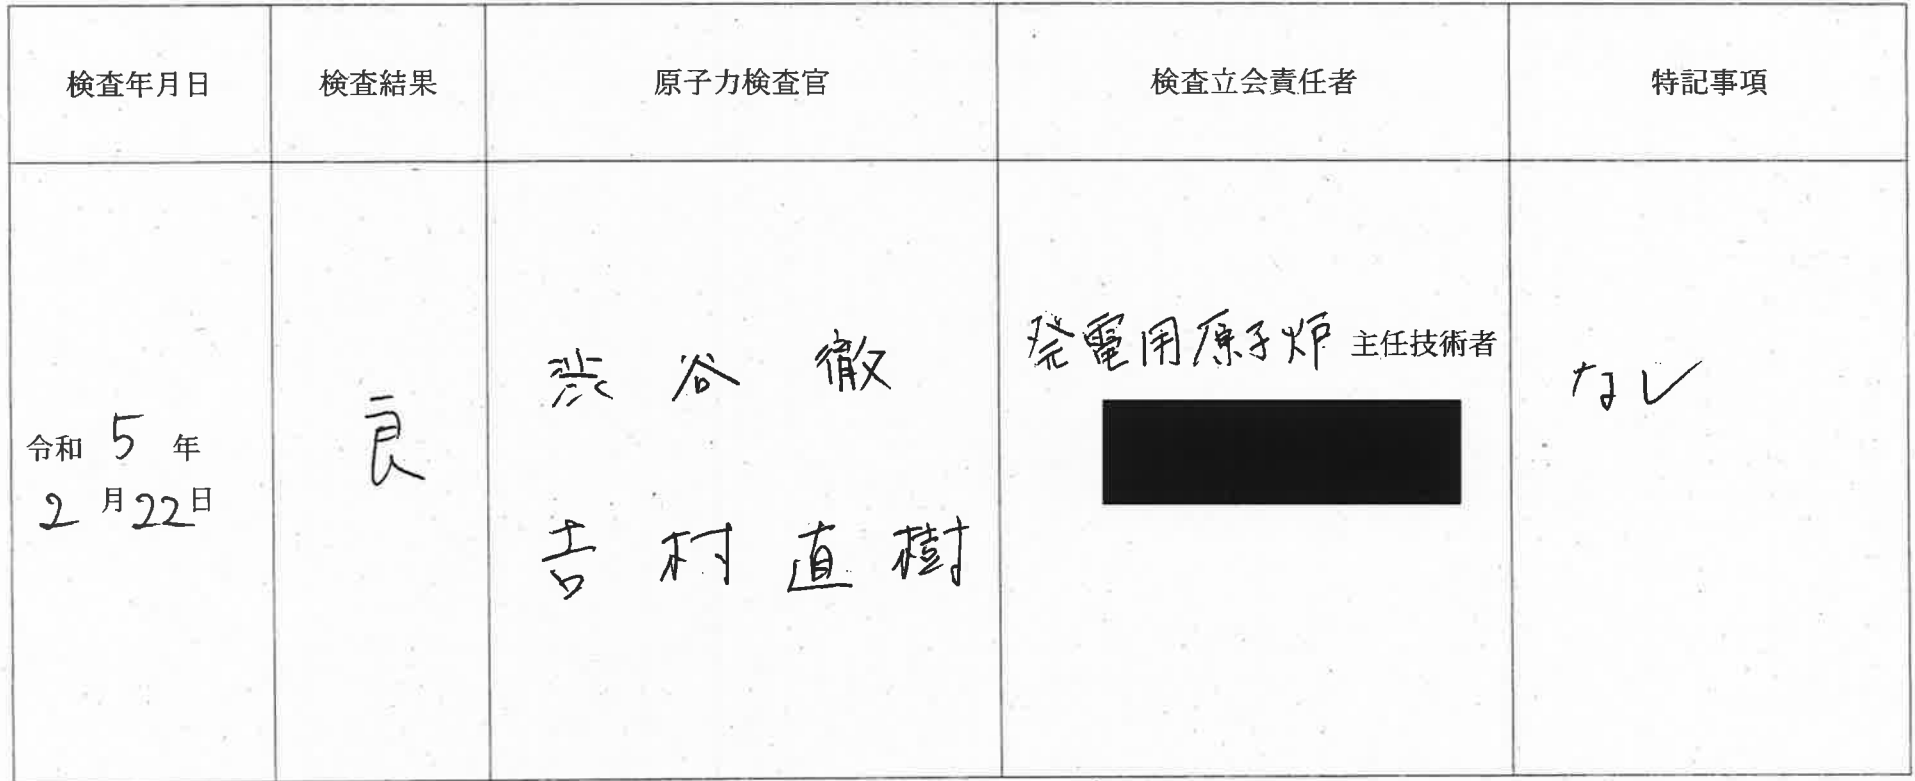 検査年月日 検査結果 原子力検査官 検査立会責任者 特記事項
令和 5 年
2 月 22 日
良
渋谷 徹
吉村直樹
発電用原子炉 主任技術者
なし